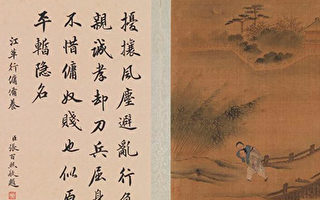 擾攘風塵避亂行負
親誠孝却刀兵屈身
不惜傭奴賤也似原
平暫隱名
江革行傭供養 臣張百熙敬題